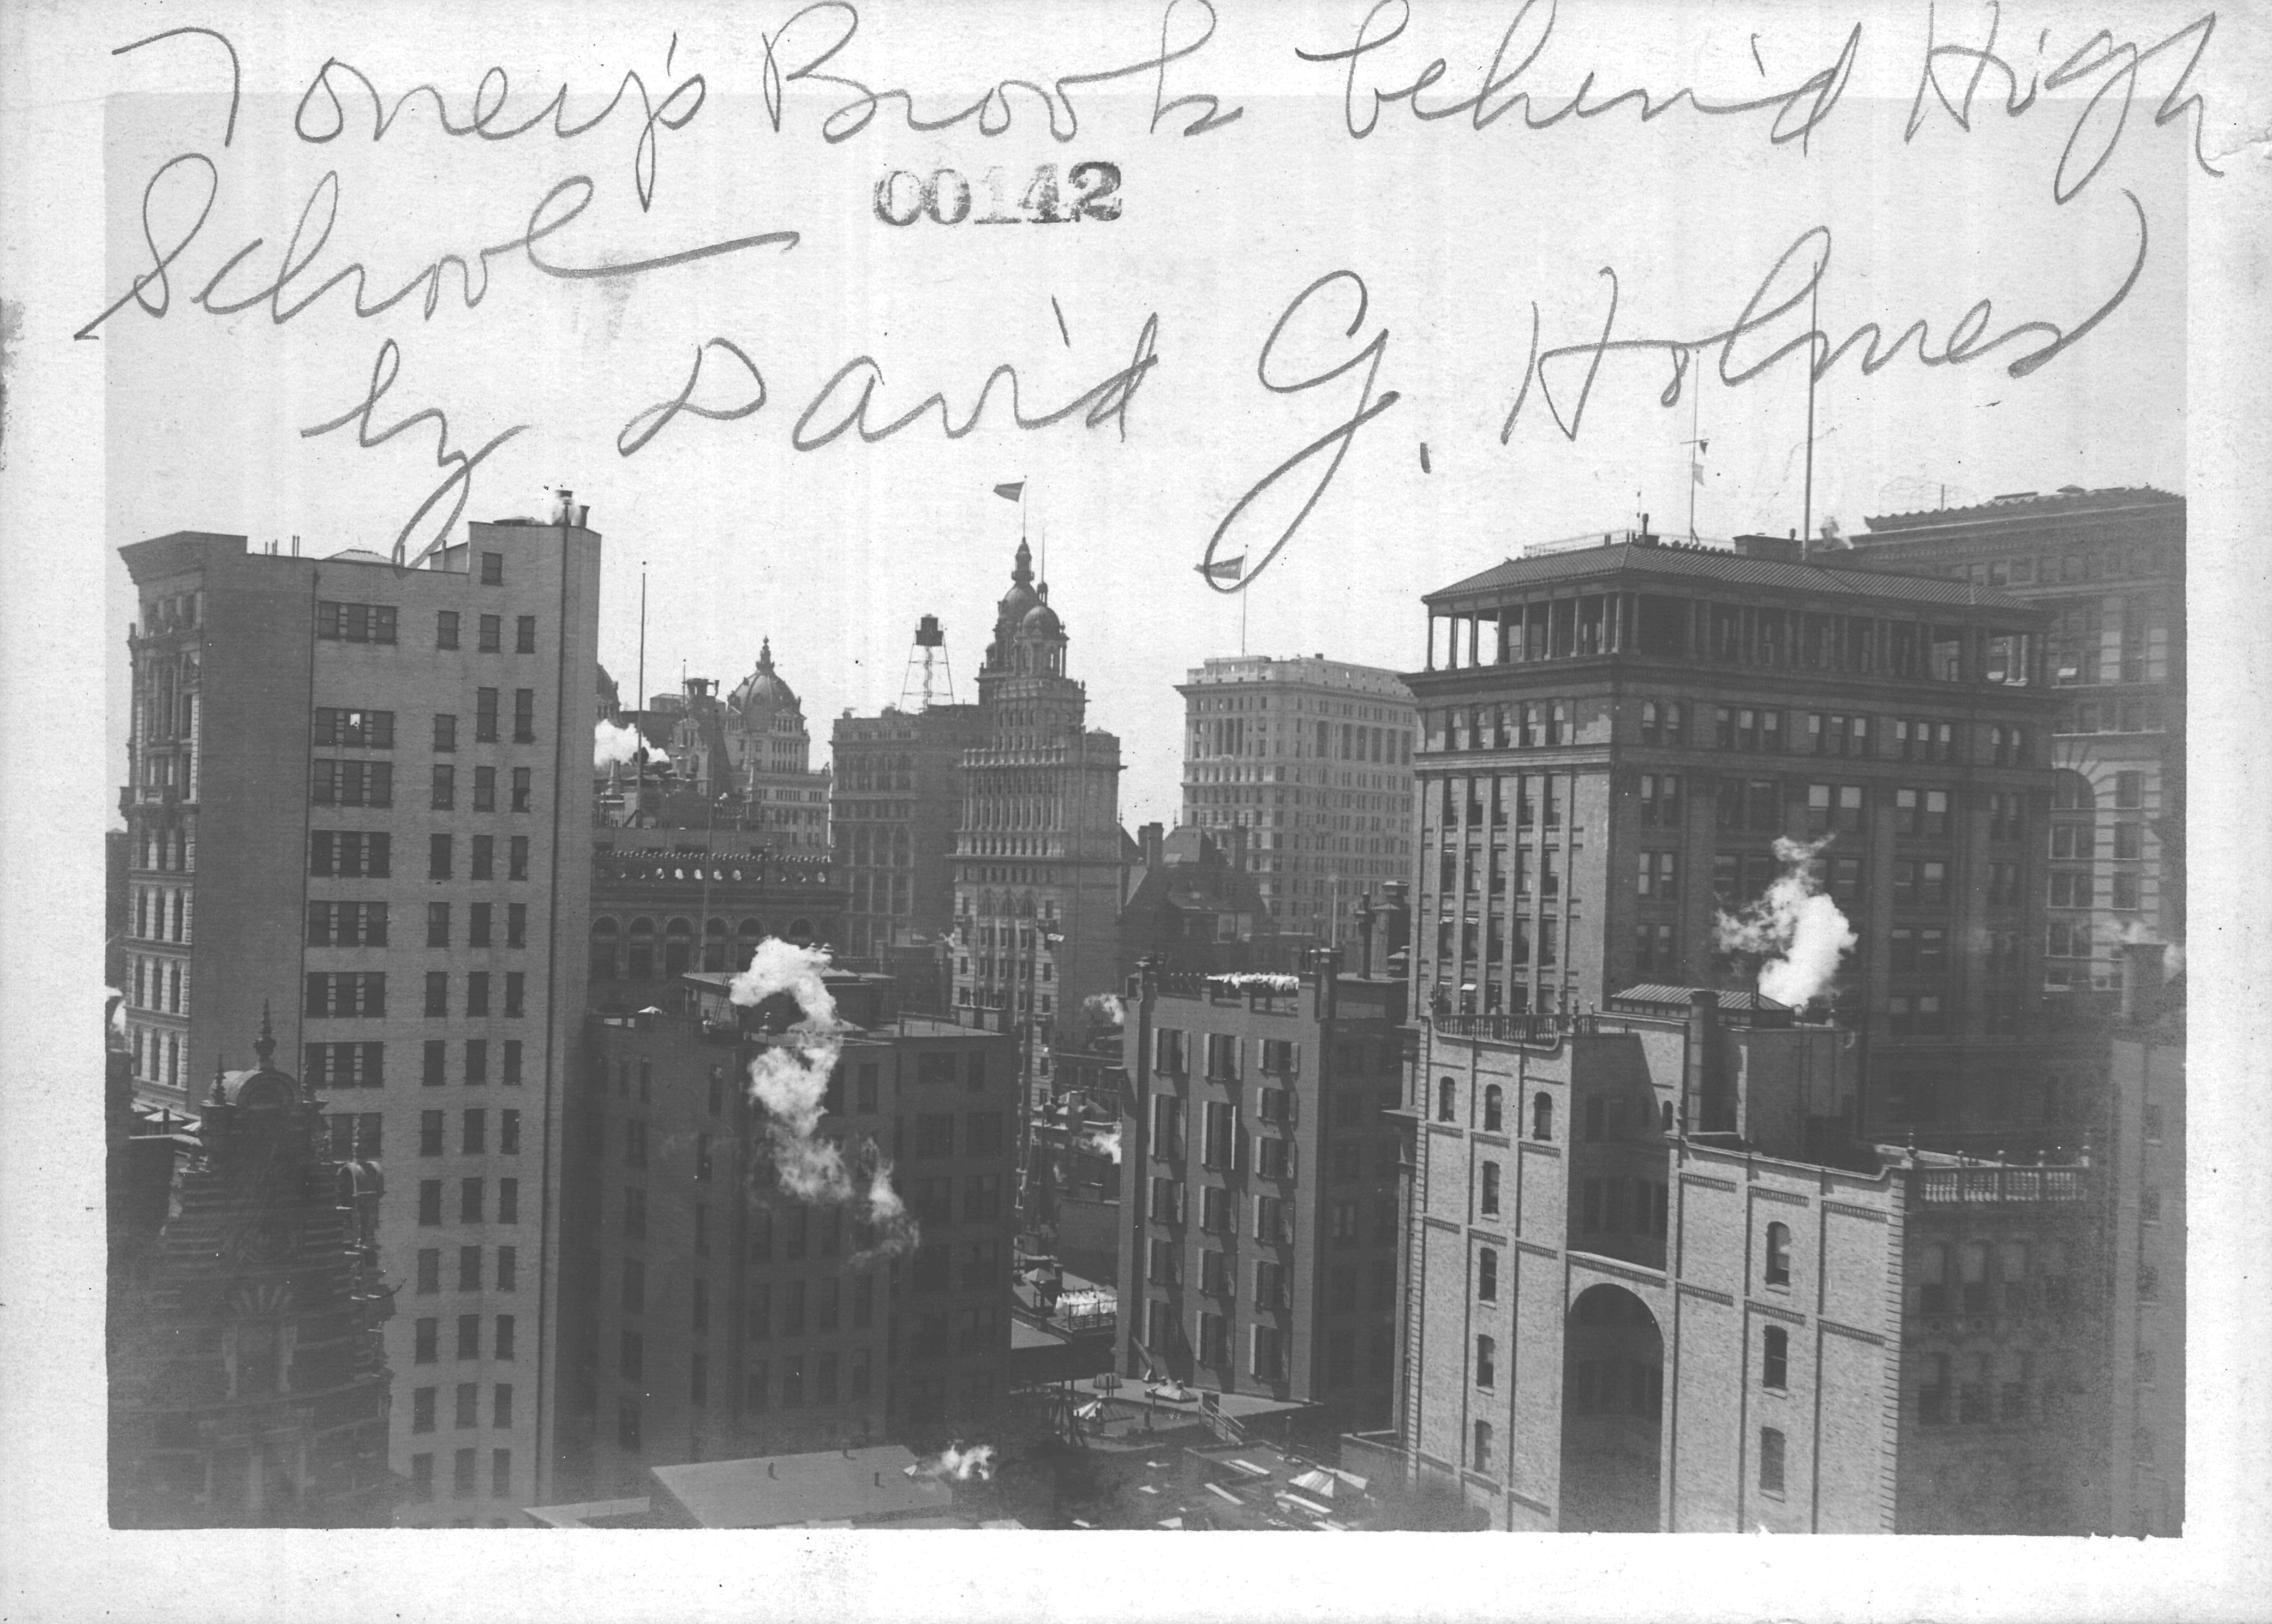 Toney's Brook behind High
00142
School
by David G. Holmes